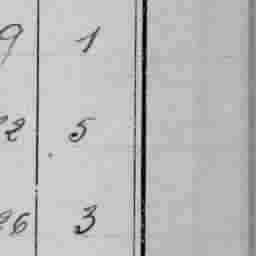 9 1
22 5
26 3